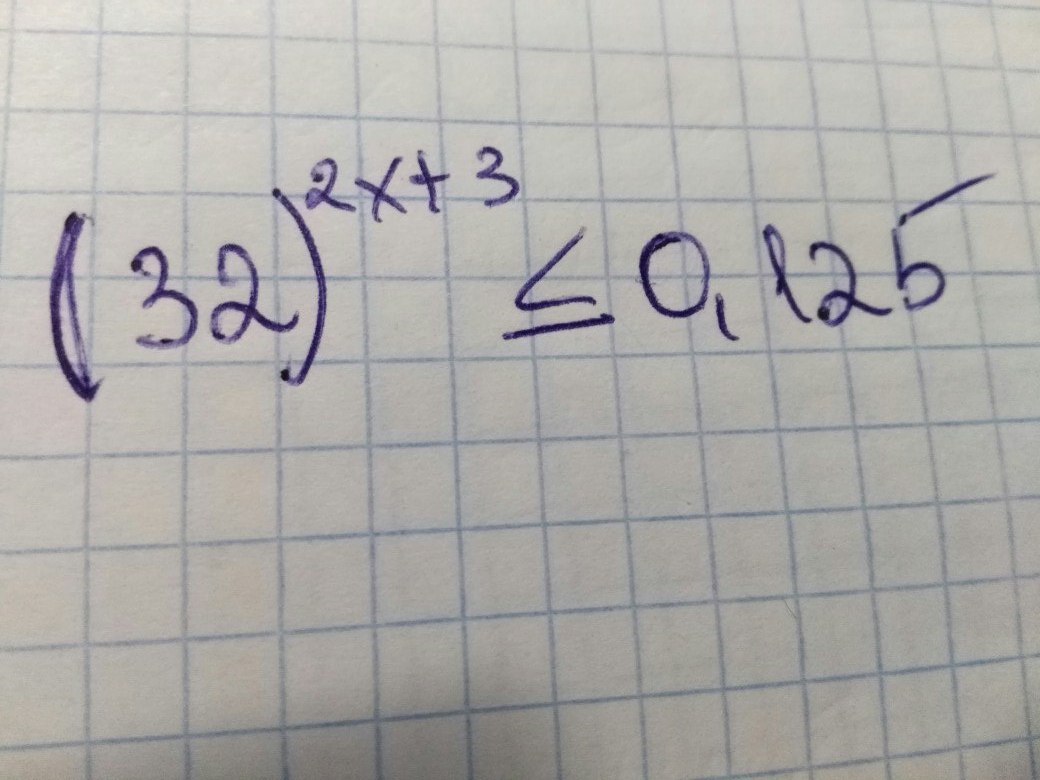 (32)^{2x+3} ≤ 0,125